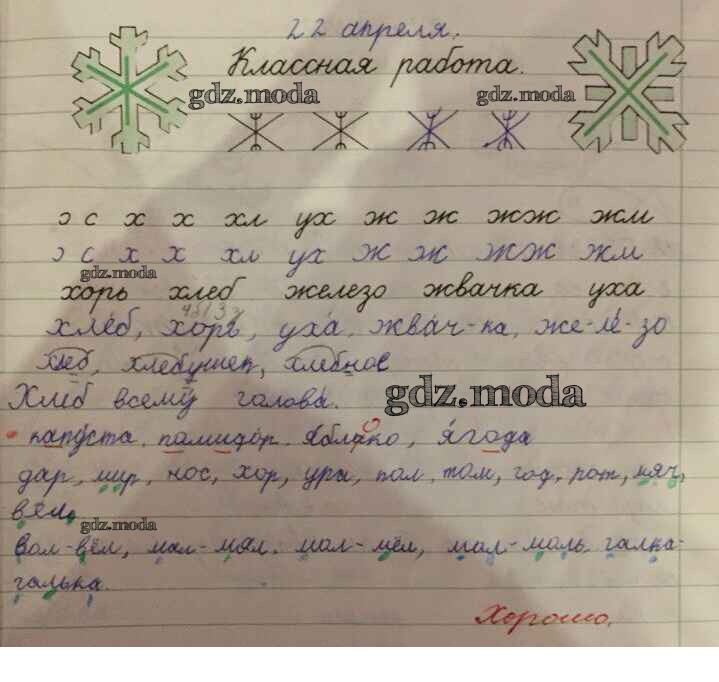 22 апреля.
Классная работа.
gdz.moda
gdz.moda
э с х х хл ух ж ж жж жм
э с х х хл ух ж ж жж жм
gdz.moda
хорь хлеб железо жвачка уха
хлеб, хорь, уха, жвач-ка, же-ле-зо
хлеб, хлебушек, хлебное
Хлеб всему голова.
gdz.moda
капуста, помидор, яблоко, ягода
дар, мир, нос, хор, ура, пол, том, год, рот, мяч,
вёл.
gdz.moda
Вол-вёл, мал-мял, мол-мёл, мол-моль, галка-
галька.
Хорошо.